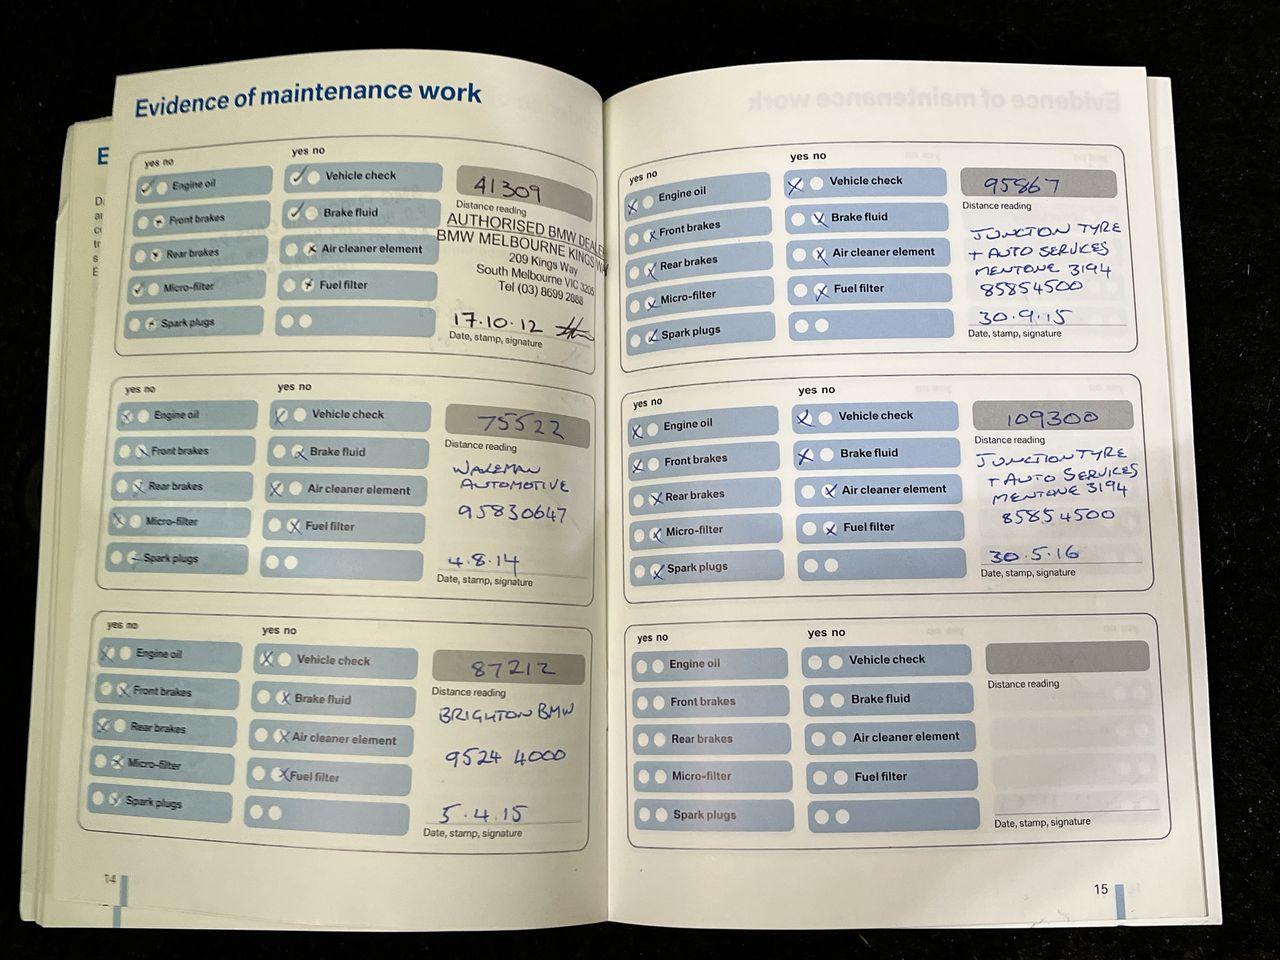 Evidence of maintenance work
yes no
yes no
Engine oil
Vehicle check
Front brakes
Brake fluid
Rear brakes
Air cleaner element
Micro-filter
Fuel filter
Spark plugs
41309
Distance reading
AUTHORISED BMW DEALE
BMW MELBOURNE KINGS WAY
209 Kings Way
South Melbourne VIC 3205
Tel (03) 8699 2888
17.10.12
Date, stamp, signature
yes no
yes no
Engine oil
Vehicle check
Front brakes
Brake fluid
Rear brakes
Air cleaner element
Micro-filter
Fuel filter
Spark plugs
75522
Distance reading
WAKEMAN
AUTOMOTIVE
95830647
4.8.14
Date, stamp, signature
yes no
yes no
Engine oil
Vehicle check
Front brakes
Brake fluid
Rear brakes
Air cleaner element
Micro-filter
Fuel filter
Spark plugs
87212
Distance reading
BRIGHTON BMW
9524 4000
5.4.15
Date, stamp, signature
14
yes no
yes no
Engine oil
Vehicle check
Front brakes
Brake fluid
Rear brakes
Air cleaner element
Micro-filter
Fuel filter
Spark plugs
95867
Distance reading
JUNCTION TYRE
+ AUTO SERVICES
MENTONE 3194
85854500
30.9.15
Date, stamp, signature
yes no
yes no
Engine oil
Vehicle check
Front brakes
Brake fluid
Rear brakes
Air cleaner element
Micro-filter
Fuel filter
Spark plugs
109300
Distance reading
JUNCTION TYRE
+ AUTO SERVICES
MENTONE 3194
8585 4500
30.5.16
Date, stamp, signature
yes no
yes no
Engine oil
Vehicle check
Front brakes
Brake fluid
Rear brakes
Air cleaner element
Micro-filter
Fuel filter
Spark plugs
Distance reading
Date, stamp, signature
15